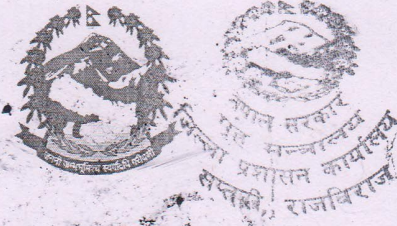 जननी जन्मभूमिश्च स्वर्गादपि गरीयसी
नेपाल सरकार
गृह मन्त्रालय
जिल्ला प्रशासन कार्यालय
सप्तरी, राजविराज